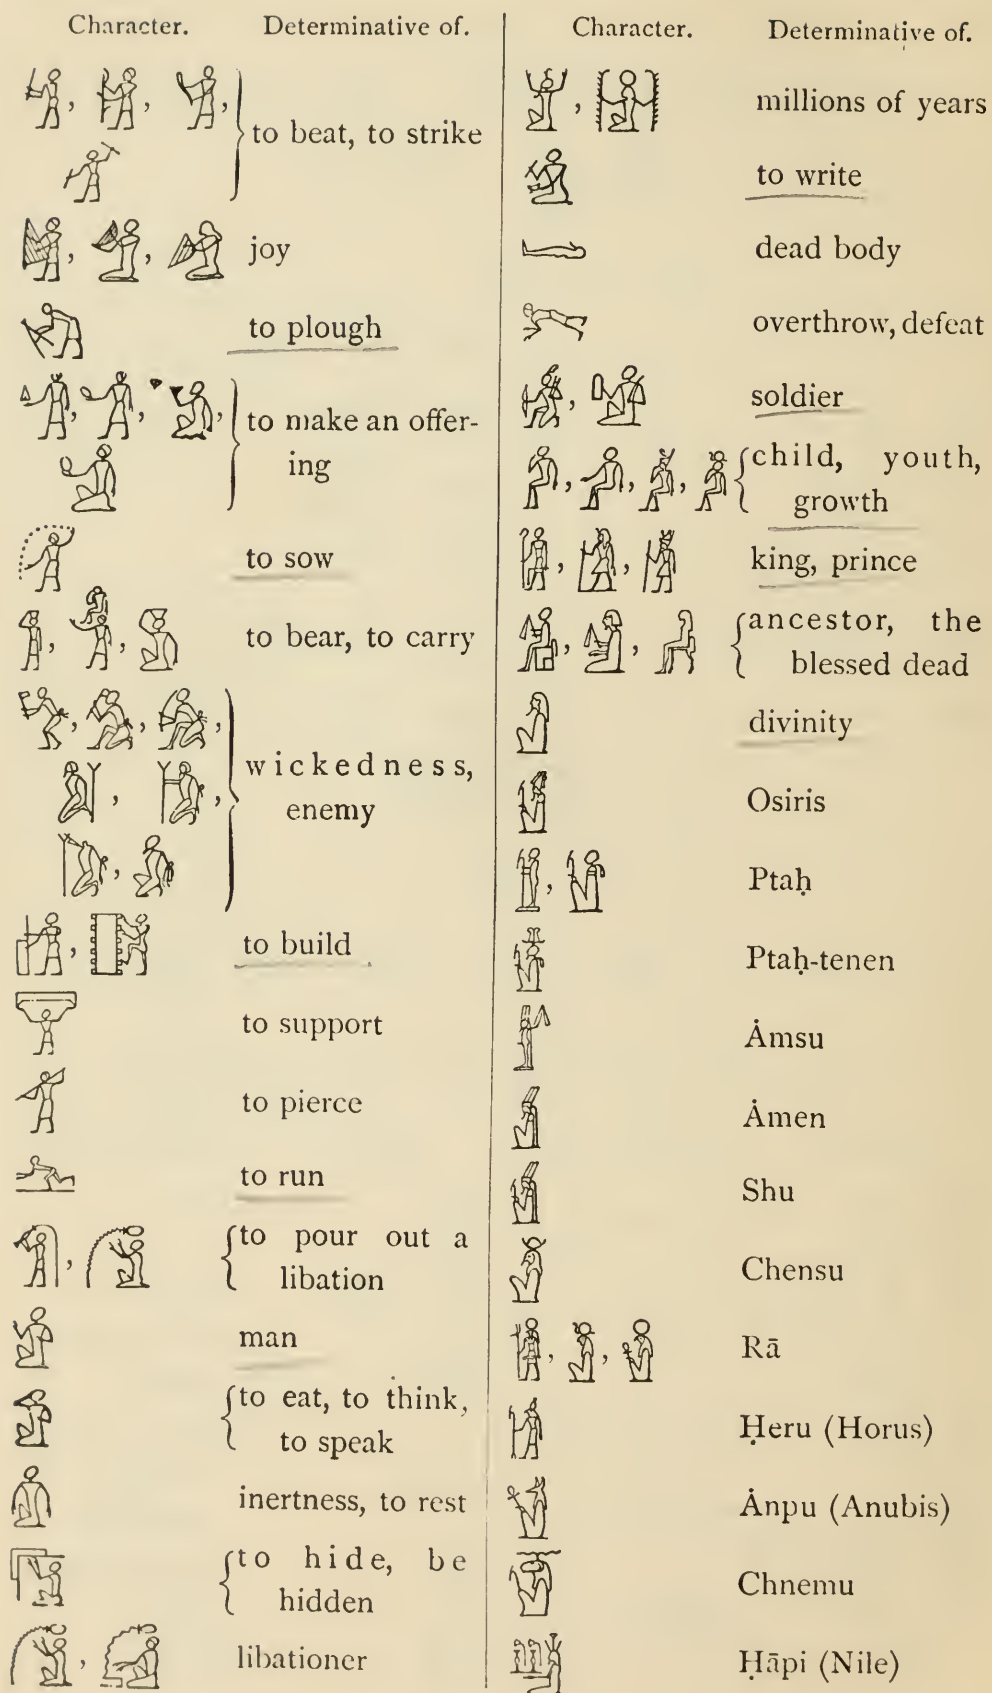 Character. Determinative of.
to beat, to strike
joy
to plough
to make an offer-
ing
to sow
to bear, to carry
wickedness,
enemy
to build
to support
to pierce
to run
to pour out a
libation
man
to eat, to think,
to speak
inertness, to rest
to hide, be
hidden
libationer
Character. Determinative of.
millions of years
to write
dead body
overthrow, defeat
soldier
child, youth,
growth
king, prince
ancestor, the
blessed dead
divinity
Osiris
Ptaḥ
Ptaḥ-tenen
Ȧmsu
Ȧmen
Shu
Chensu
Rā
Ḥeru (Horus)
Ȧnpu (Anubis)
Chnemu
Ḥāpi (Nile)